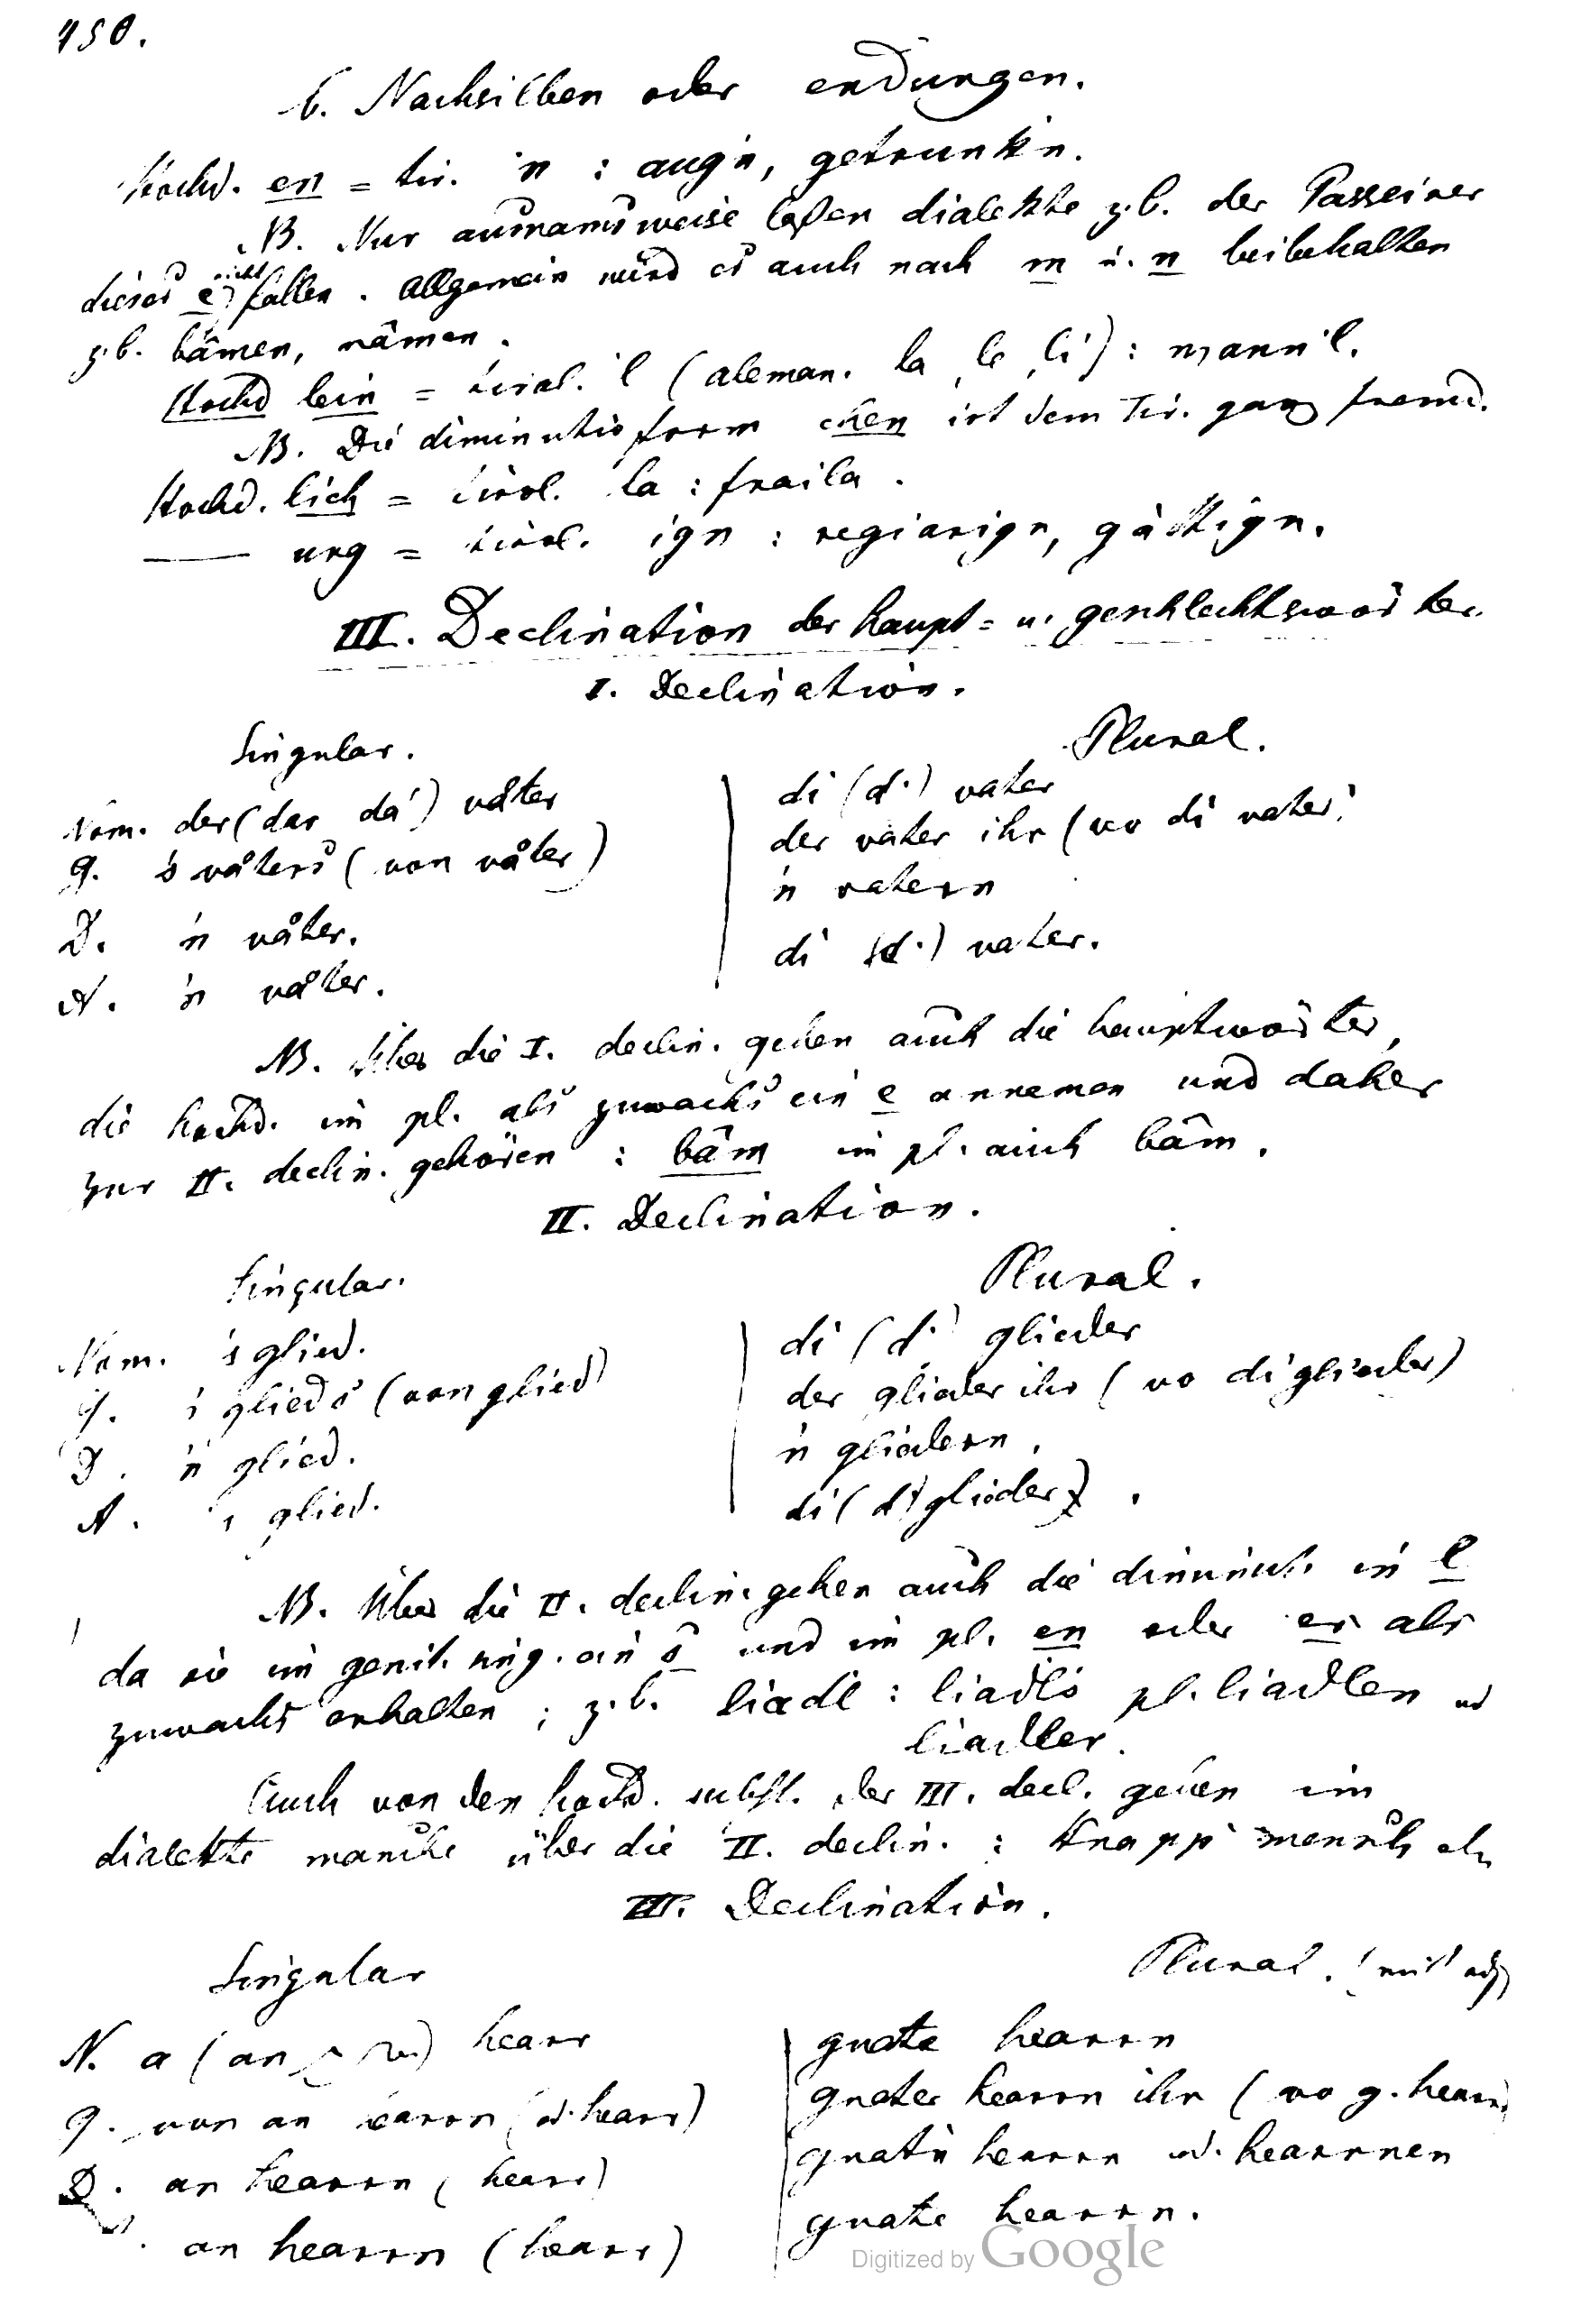 450.
b. Nachsilben oder endungen.
Hochd. en = tir. 'n : aug'n, getrunk'n.
NB. Nur ausnamsweise laßen dialekte z.b. der Passeirer
dieses e nicht fallen. Allgemein wird es auch nach m u. n beibehalten
z.b. bâmen, nâmen.
Hochd lein = tirol. 'l (aleman. la, le, li) : mann'l.
NB. Die diminutivform chen ist dem Tir. ganz fremd.
Hochd. lich = tirol. la : fraila.
—— ung = tirol. ign : regiarign, gàttign.
III. Declination der haupt= u. geschlechtswörter.
I. Declination.
Singular.
Plural.
Nom. der (dar da') våter
di (d') vater
G. 's våters (von våter)
der vater ihr (vo di vater)
D. 'n våter.
'n vatern
A. 'n våter.
di (d') vater.
NB. Über die I. declin. gehen auch die hauptwörter,
die hochd. im pl. als zuwachs ein e annemen und daher
zur II. declin. gehören : bâm im pl. auch bâm.
II. Declination.
Singular.
Plural.
Nom. 's glied.
di (d') glieder
G. 's glieds (von glied)
der glieder ihr (vo di glieder)
D. 'n glied.
'n gliedern.
A. 's glied.
di (d') glieder.
NB. Über die II. declin. gehen auch die diminut. in l
da sie im genit. sing. ein s und im pl. en oder er als
zuwachs erhalten ; z.b. liadl : liadls pl. liadlen od
liadler.
Auch von den hochd. subst. der III. decl. gehen im
dialekte manche über die II. declin. : Knapp mensch etc
III. Declination.
Singular
Plural. (mit adj)
N. a (an) hearr
guate hearrn
G. von an hearrn (od. hearr)
guater hearrn ihr (vo g. hearrn)
D. an hearrn (hearr)
guat'n hearrn od. hearrnen
an hearrn (hearr)
guate hearrn.
Digitized by Google